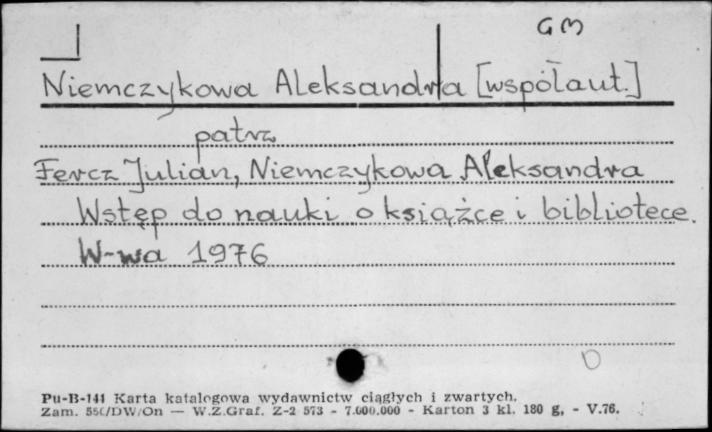 GM
Niemczykowa Aleksandra [współaut.]
patrz
Fercz Julian, Niemczykowa Aleksandra
Wstęp do nauki o książce i bibliotece.
W-wa 1976
Pu-B-141 Karta katalogowa wydawnictw ciągłych i zwartych.
Zam. /DW/On — W.Z.Graf. Z-2 573 - 7.000.000 - Karton 3 kl. 180 g. - V.76.